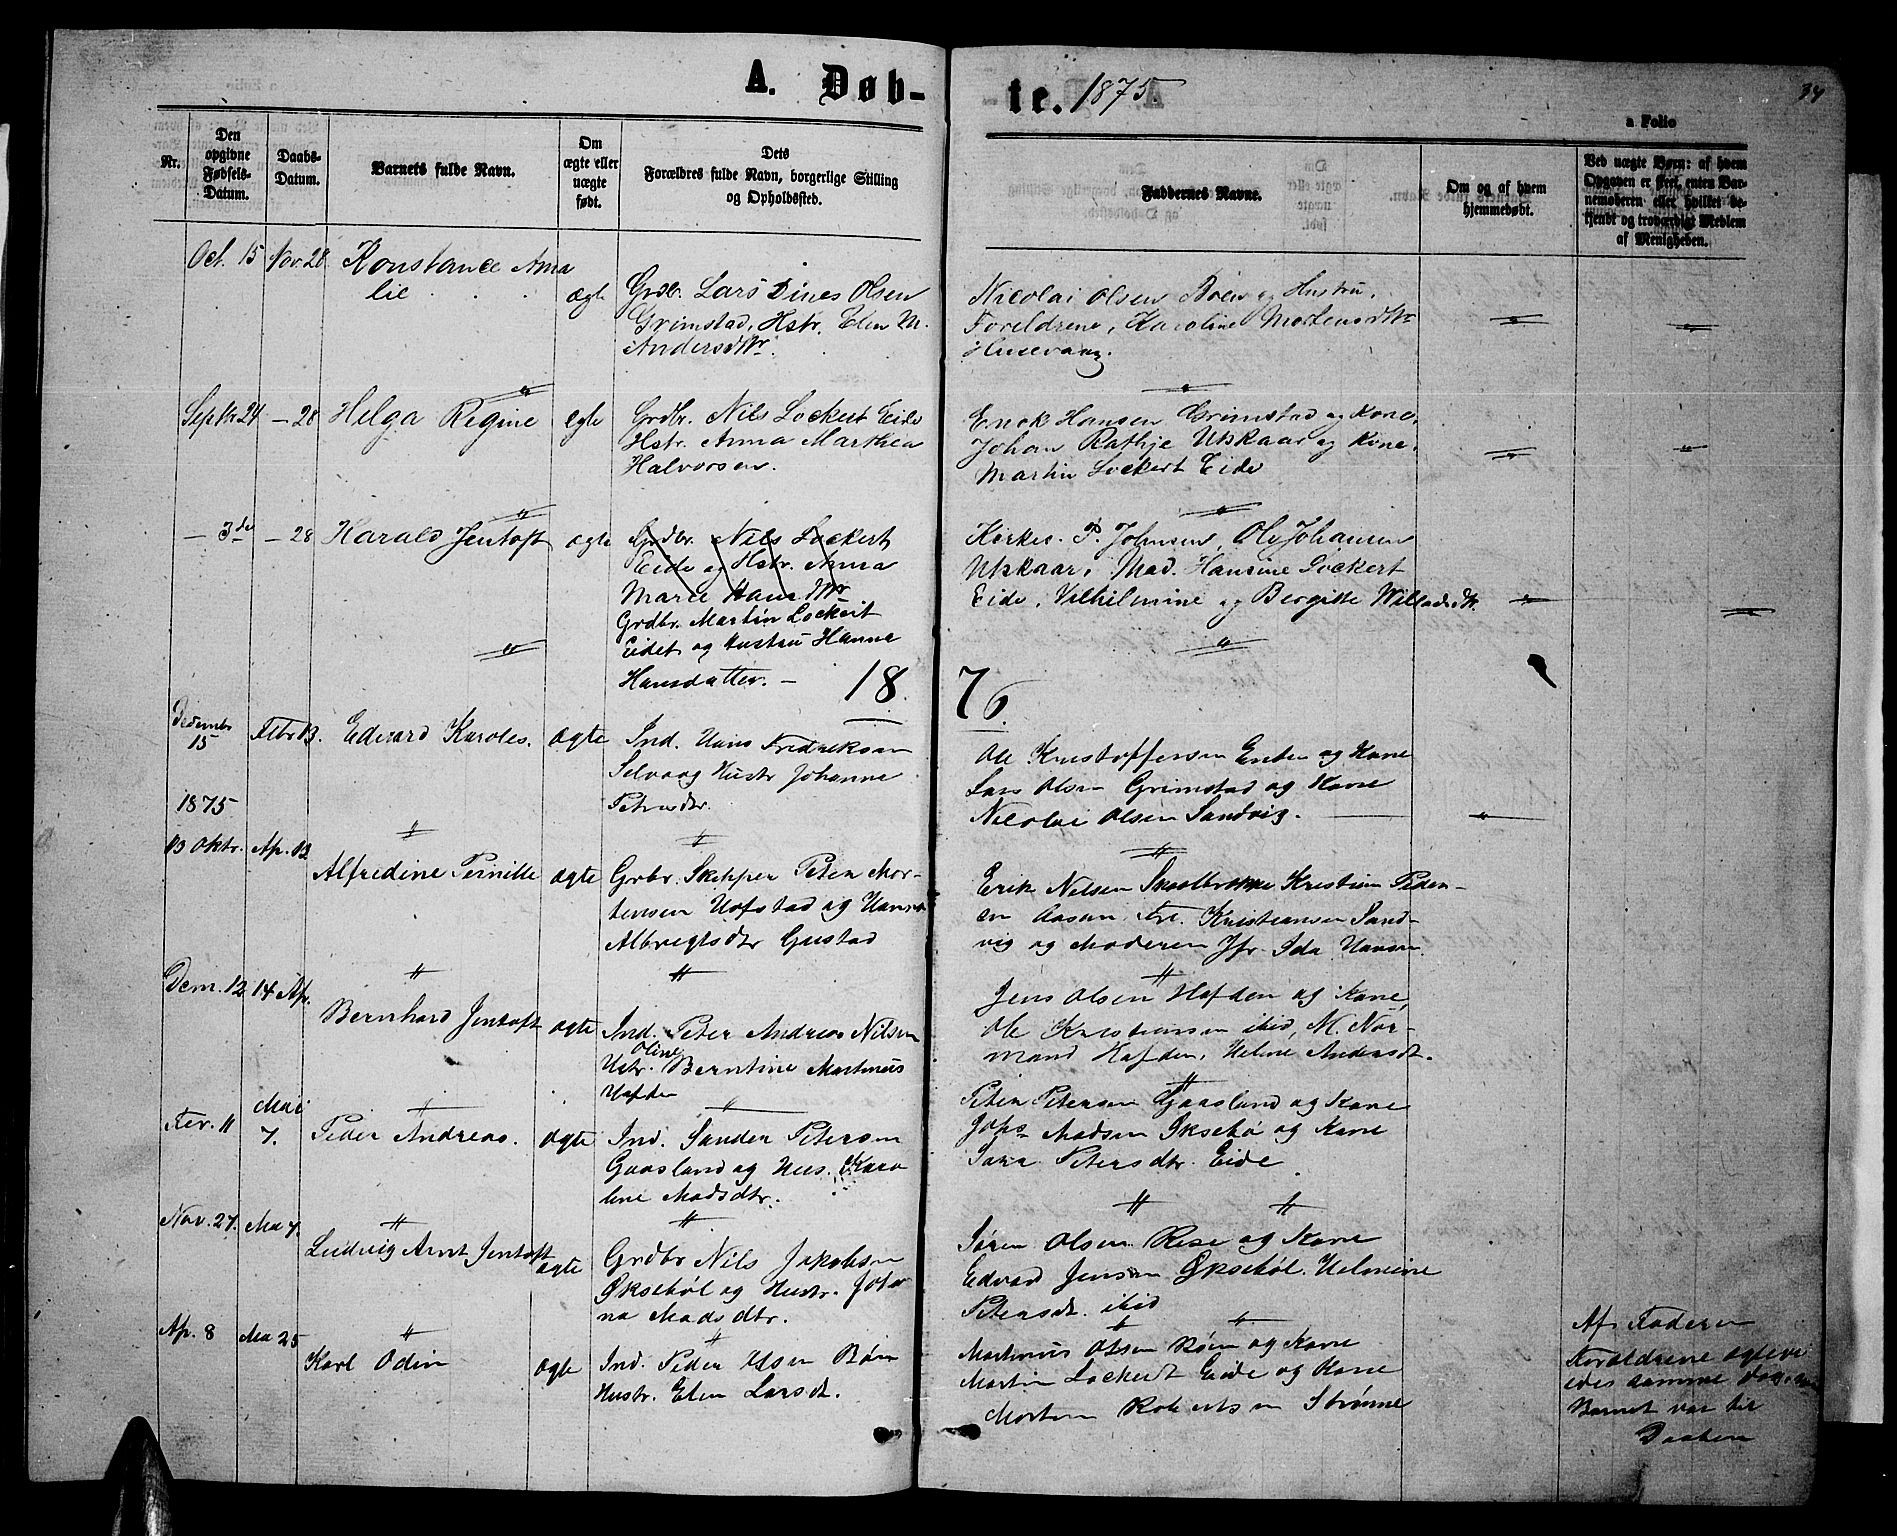 A. Døb-
te. 1875.
34
a Folio
Nr.
Den
opgivne
Fødsels-
Datum.
Daabs-
Datum.
Barnets fulde Navn.
Om
ægte eller
uægte
født.
Dets
Forældres fulde Navn, borgerlige Stilling
og Opholdssted.
Faddernes Navne.
Om og af hvem
hjemmedøbt.
Ved uægte Børn: af hvem
Opgaven er skeet, enten Bar-
nemoderen eller hvilket be-
kjendt og troværdigt Medlem
af Menigheden.
Oct. 15 Nov. 28 Konstance Ama
lie
ægte Grdbr. Lars Dines Olsen
Grimstad, Hstr. Elen M.
Andersdtr.
Nicolai Olsen Bøen og Hustru,
Foreldrene, Karoline Mortensdtr
Husevaag.
Septbr 24 - 28 Helga Regine ægte Grdbr. Nils Lockert Eide
Hstr. Anna Marthea
Halvorsen.
Enok Hansen Grimstad og Kone,
Johan Rathje Utskaar og Kone,
Martin Lockert Eide
- 3die - 28 Harald Jentoft ægte Grdbr. Nils Lockert
Eide og Hstr. Anna
Marie Hansdtr
Grdbr. Martin Lockert
Eidet og Hustru Hanna
Hansdatter. -
Kirkes. P. Johnsen, Ole Johansen
Utskaar, Mad. Hansine Lockert
Eide, Vilhelmine og Bergitte Willadsdtr.
18 76.
Decembr
15
1875
Febr 13. Edvard Karoles. ægte Ind. Hans Fredriksen
Selvaag Hustr Johanna
Petersdtr.
Ole Kristoffersen Enten og Kone
Lars Olsen Grimstad og Kone
Nicolai Olsen Sandvig.
13 Oktr. Ap. 13 Alfredine Pernille ægte Grbr. Skipper Peter Mor-
tensen Hofstad og Hansn
Albregtsdtr Gustad
Erik Nilsen Skaalbrække Kristian Peder-
sen Aasan, Fre. Kristiansen Sand-
vig og Moderen Jfr. Ida Hansen.
Decm. 12 14 Ap. Bernhard Jentoft ægte Ind. Peder Andreas Nilsen
Hstr. Oline Berntine Martinus
Hafden
Jens Olsen Hafden og Kone,
Ole Kristiansen ibid, M. Nor-
mand Hafden, Helene Andersdt.
Fev. 11 Mai
7. Peder Andreas. ægte Ind. Sander Petersen
Gaasland og Hus. Karo
line Madsdtr.
Peter Petersen Gaasland og Kone
Johs Madsen Øksebø og Kone
Sara Petersdtr. Eide
Nov. 27. Ma 7. Ludvig Arnt Jentoft ægte Grdbr Nils Jakobsen
Øksebøl og Hustr. Johan
na Madsdtr.
Søren Olsen Rise og Kone
Edvard Jensen Øksebøl. Helmine
Petersdt. ibid
Ap. 8 Ma 25 Karl Odin ægte Ind. Peder Olsen Bøen
Hustr. Elen Larsdt.
Martinus Olsen Bøen og Kone
Martin Lockert Eide og Kone
Morten Robertsen Strønne
Af Faderen
Foraldrene ægtevi
edes samme Dag, som
Barnet var til
Daaben